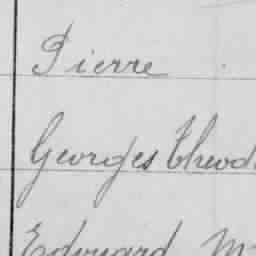 Pierre
Georges Theod
Edouard M